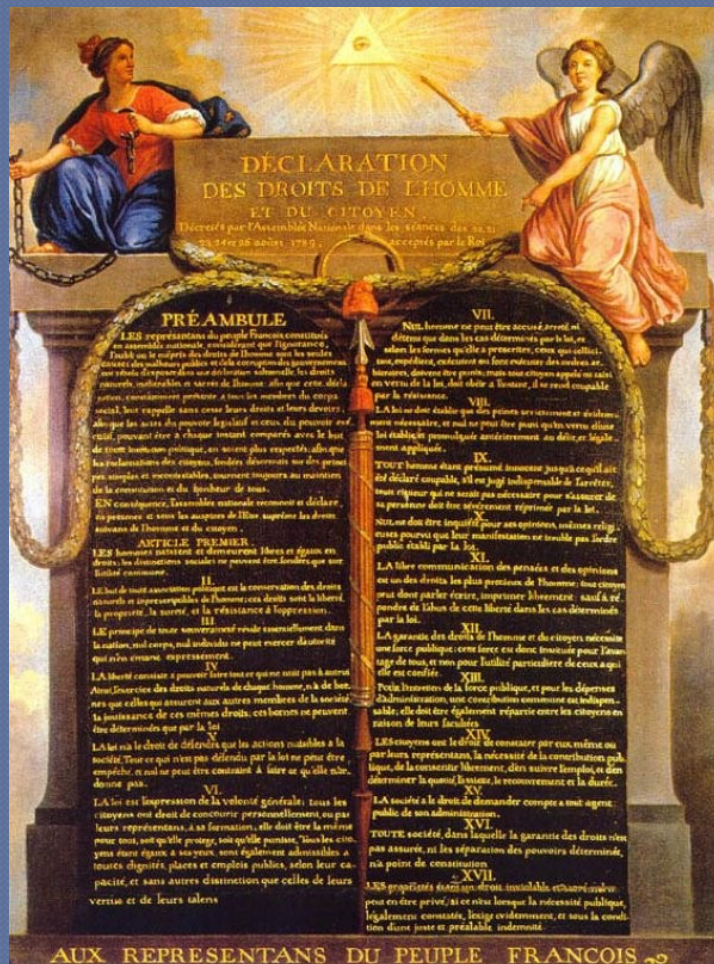 DÉCLARATION
DES DROITS DE L'HOMME
ET DU CITOYEN
Décretés par l'Assemblée Nationale dans les séances des 20, 21
23, 24 et 26 août 1789, acceptés par le Roi
PRÉAMBULE
LES représentans du peuple François constitués
en assemblée nationale, considérant que l'ignorance,
l'oubli ou le mépris des droits de l'homme sont les seules
causes des malheurs publics et de la corruption des gouvernemens
ont résolu d'exposer dans une déclaration solemnelle, les droits
naturels, inaliénables et sacrés de l'homme; afin que cette décla
ration, constamment présente a tous les membres du corps
social, leur rappelle sans cesse leurs droits et leurs devoirs;
afin que les actes du pouvoir législatif et ceux du pouvoir exé
cutif, pouvant être à chaque instant comparés avec le but
de toute institution politique, en soient plus respectés; afin que
les réclamations des citoyens, fondées désormais sur des princi
pes simples et incontestables, tournent toujours au maintien
de la constitution et du bonheur de tous.
EN conséquence, l'assemblée nationale reconnoit et déclare,
en présence et sous les auspices de l'Etre suprême les droits
suivans de l'homme et du citoyen.
ARTICLE PREMIER.
LES hommes naissent et demeurent libres et égaux en
droits; les distinctions sociales ne peuvent être fondées que sur
l'utilité commune.
II.
LE but de toute association politique est la conservation des droits
naturels et imprescriptibles de l'homme; ces droits sont la liberté,
la propriété, la sureté, et la résistance à l'oppression.
III.
LE principe de toute souveraineté réside essentiellement dans
la nation, nul corps, nul individu ne peut exercer d'autorité
qui n'en émane expressément.
IV.
LA liberté consiste a pouvoir faire tout ce qui ne nuit pas à autrui
Ainsi, l'exercice des droits naturels de chaque homme, n'a de bor
nes que celles qui assurent aux autres membres de la société
la jouissance de ces mêmes droits; ces bornes ne peuvent
être déterminées que par la loi
V.
LA loi n'a le droit de défendre que les actions nuisibles à la
société. Tout ce qui n'est pas défendu par la loi ne peut être
empêché, et nul ne peut être contraint à faire ce qu'elle n'or
donne pas.
VI.
LA loi est l'expression de la volonté générale; tous les
citoyens ont droit de concourir personnellement, ou par
leurs représentans, à sa formation; elle doit être la même
pour tous, soit qu'elle protege, soit qu'elle punisse. Tous les cito
yens étant égaux à ses yeux, sont également admissibles a
toutes dignités, places et emplois publics, selon leur ca
pacité, et sans autres distinction que celles de leurs
vertus et de leurs talens
VII.
NUL homme ne peut être accusé, arreté, ni
détenu que dans les cas déterminés par la loi, et
selon les formes qu'elle a prescrites, ceux qui sollici
tent, expédient, exécutent ou font exécuter des ordres ar
bitraires, doivent être punis; mais tout citoyen appelé ou saisi
en vertu de la loi, doit obéir a l'instant, il se rend coupable
par la résistance.
VIII.
LA loi ne doit établir que des peines strictement et évidem
ment nécessaire, et nul ne peut être puni qu'en vertu d'une
loi établie et promulguée antérieurement au délit, et légale
ment appliquée.
IX.
TOUT homme étant présumé innocent jusqu'a ce qu'il ait
été déclaré coupable, s'il est jugé indispensable de l'arrêter,
toute rigueur qui ne serait pas nécessaire pour s'assurer de
sa personne doit être sévèrement réprimée par la loi.
X.
NUL ne doit être inquiété pour ses opinions, mêmes religi
euses pourvu que leur manifestation ne trouble pas l'ordre
public établi par la loi.
XI.
LA libre communication des pensées et des opinions
est un des droits les plus precieux de l'homme; tout citoyen
peut donc parler écrire, imprimer librement: sauf à ré
pondre de l'abus de cette liberté dans les cas déterminés
par la loi.
XII.
LA garantie des droits de l'homme et du citoyen nécessite
une force publique; cette force est donc instituée pour l'avan
tage de tous, et non pour l'utilité particuliere de ceux a qui
elle est confiée.
XIII.
Pour l'entretien de la force publique, et pour les dépenses
d'administration, une contribution commune est indispen
sable; elle doit être également répartie entre les citoyens en
raison de leurs facultées
XIV.
LES citoyens ont le droit de constater par eux même ou
par leurs représentans, la nécessité de la contribution pub
lique, de la consentir librement, d'en suivre l'emploi, et d'en
déterminer la quotité, l'assiette, le recouvrement et la durée.
XV.
LA société a le droit de demander compte a tout agent
public de son administration.
XVI.
TOUTE société, dans laquelle la garantie des droits n'est
pas assurée, ni les séparation des pouvoirs déterminée,
n'a point de constitution
XVII.
LES propriétés étant un droit inviolable et sacré, nul ne
peut en être privé, si ce n'est lorsque la nécessité publique,
légalement constatée, l'exige evidemment, et sous la condi
tion d'une juste et préalable indemnité.
AUX REPRESENTANS DU PEUPLE FRANCOIS